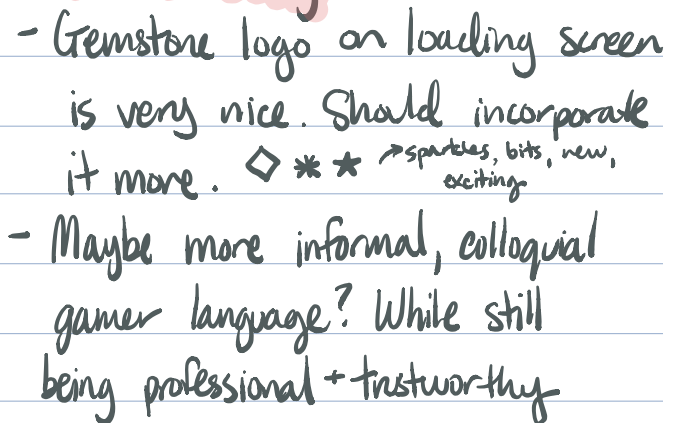 - Gemstone logo on loading screen
is very nice. Should incorporate
it more. ◇ * ★ → sparkles, bits, new,
exciting
- Maybe more informal, colloquial
gamer language? While still
being professional + trustworthy